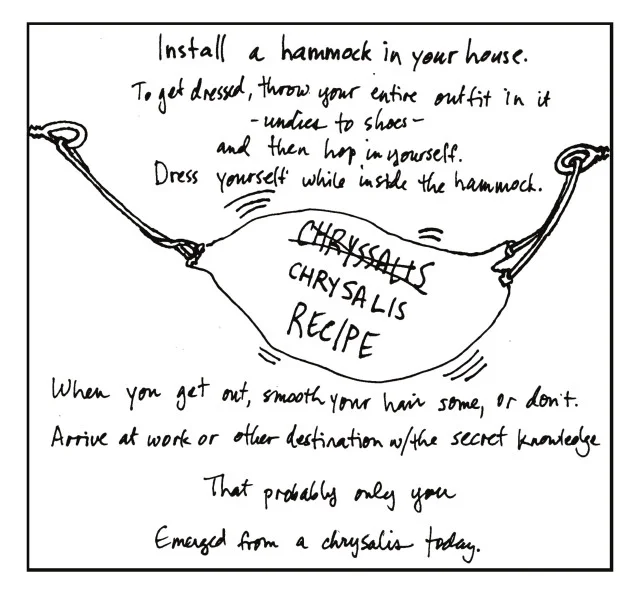 Install a hammock in your house.
To get dressed, throw your entire outfit in it
- undies to shoes -
and then hop in yourself.
Dress yourself while inside the hammock.
CHRYSSALIS
CHRYSALIS
RECIPE
When you get out, smooth your hair some, or don't.
Arrive at work or other destination w/the secret knowledge
That probably only you
Emerged from a chrysalis today.